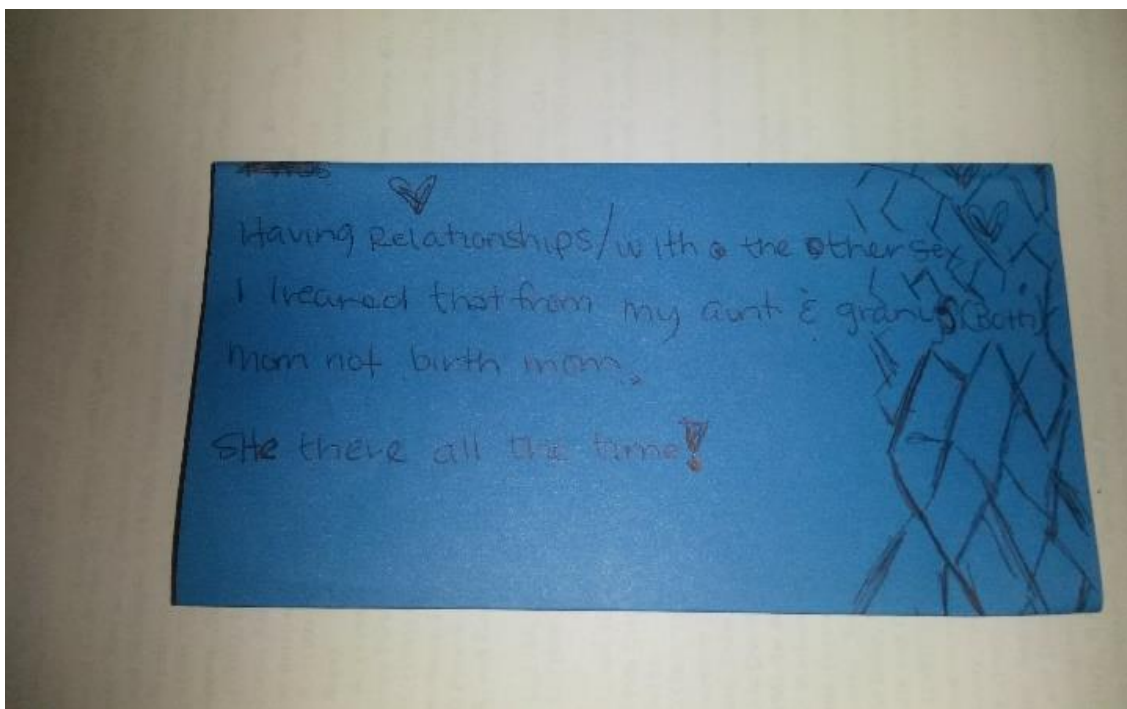 Having Relationships/with the other sex
I lreaned that from my aunt & granys (Both)
mom not birth mom.
SHe there all the time!